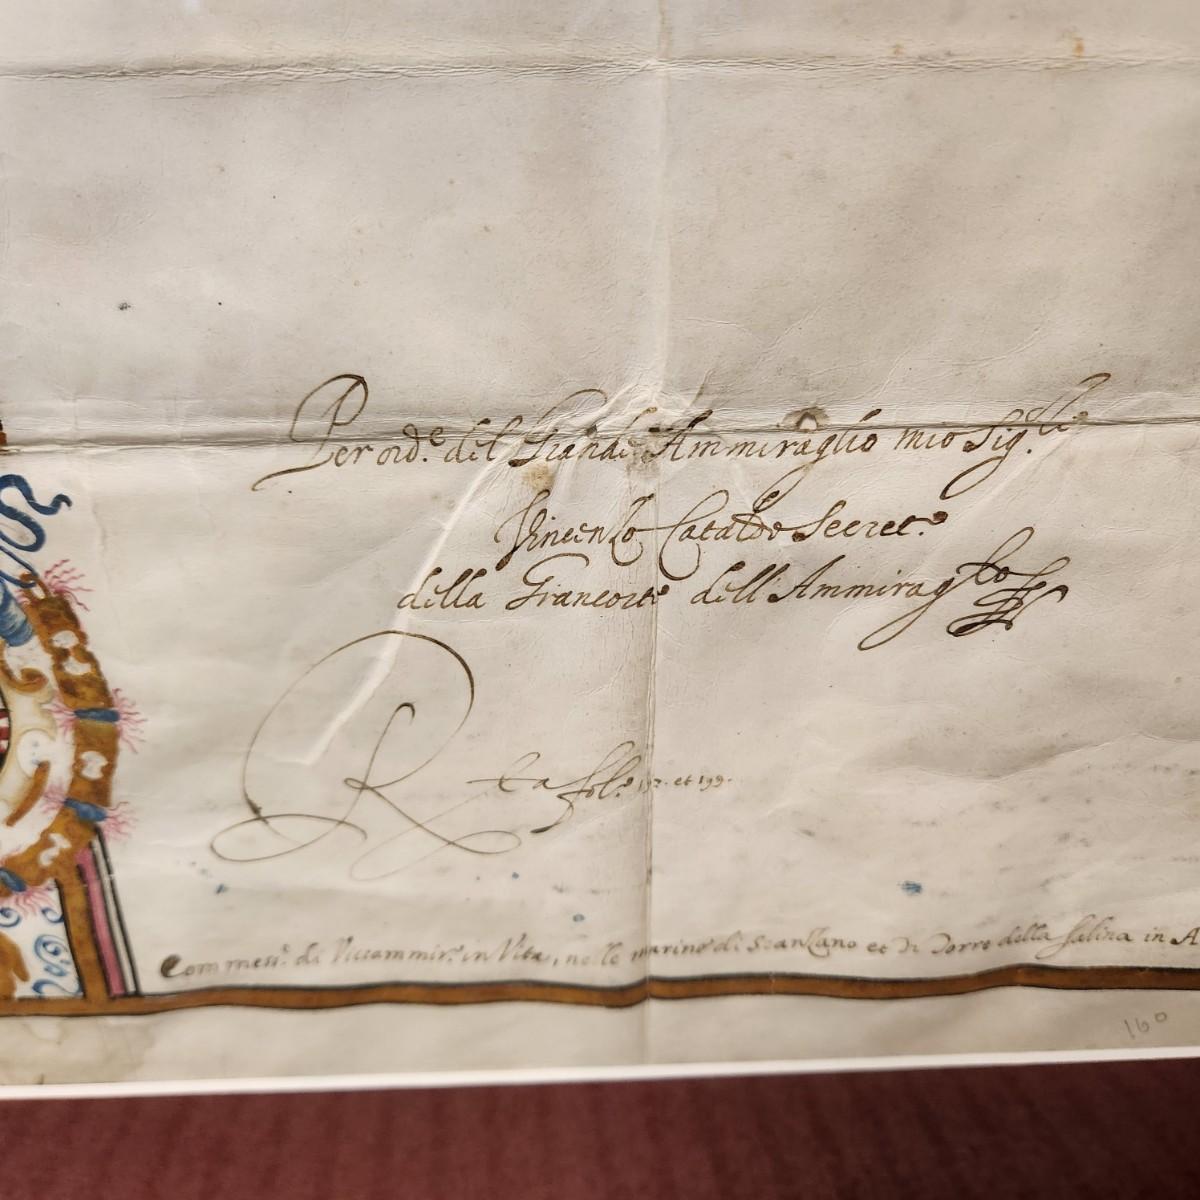 Per ord.e del Grande Ammiraglio mio Sig.re
Vincenzo Cataldo Secret.o
della Grancorte dell'Ammiraglto
R.ta fol.o 197. et 199.
Commess.e di Viceammir.o in Vita, nelle marine di Scanzano et di Torre della Salina in A
160